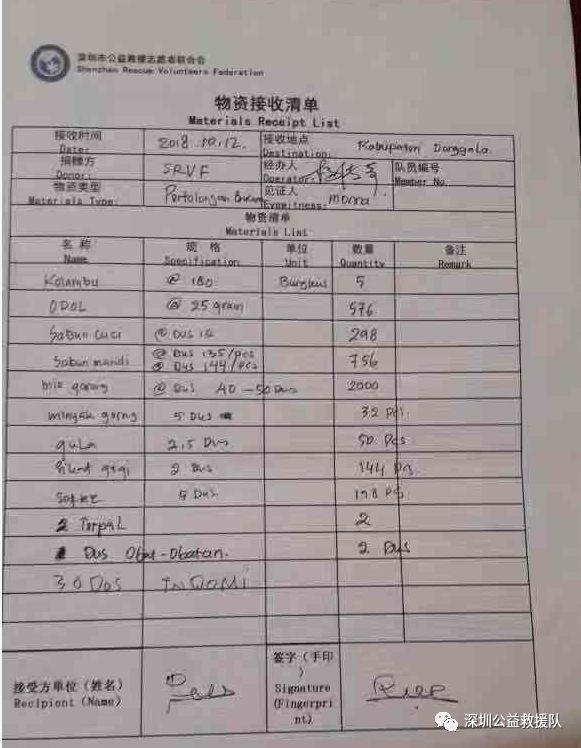 深圳市公益救援志愿者联合会
Shenzhen Rescue Volunteers Federation
物资接收清单
Materials Receipt List
接收时间 Date: 2018.10.12. 接收地点 Destination: Kabupaten Donggala
捐赠方 Donor: SRVF 经办人 Operator: 队员编号 Member No.
物资类型 Materials Type: 见证人 Eyewitness: monra
物资清单
Materials List
名称 规格 单位 数量 备注
Name Specification Unit Quantity Remark
Kolambu @ 180 Bungkus 5
ODOL @ 25 gram 576
Sabun cuci @ Dus 298
Sabun mandi @ Dus 135/pcs 756
@ Dus 144/pcs
mie goreng @ Dus 40 - 50 Dus 2000
minyak goreng 5 Dus 32
gula 2,5 Dus 50 Pcs
Sikat gigi 2 Dus 144
5 Dus 178
2 Terpal 2
Dus Obat-Obatan. 2 Dus
30 Dos INDOMI
接受方单位（姓名） 签字（手印）
Recipiont (Name) Signature (Fingerprint)
深圳公益救援队